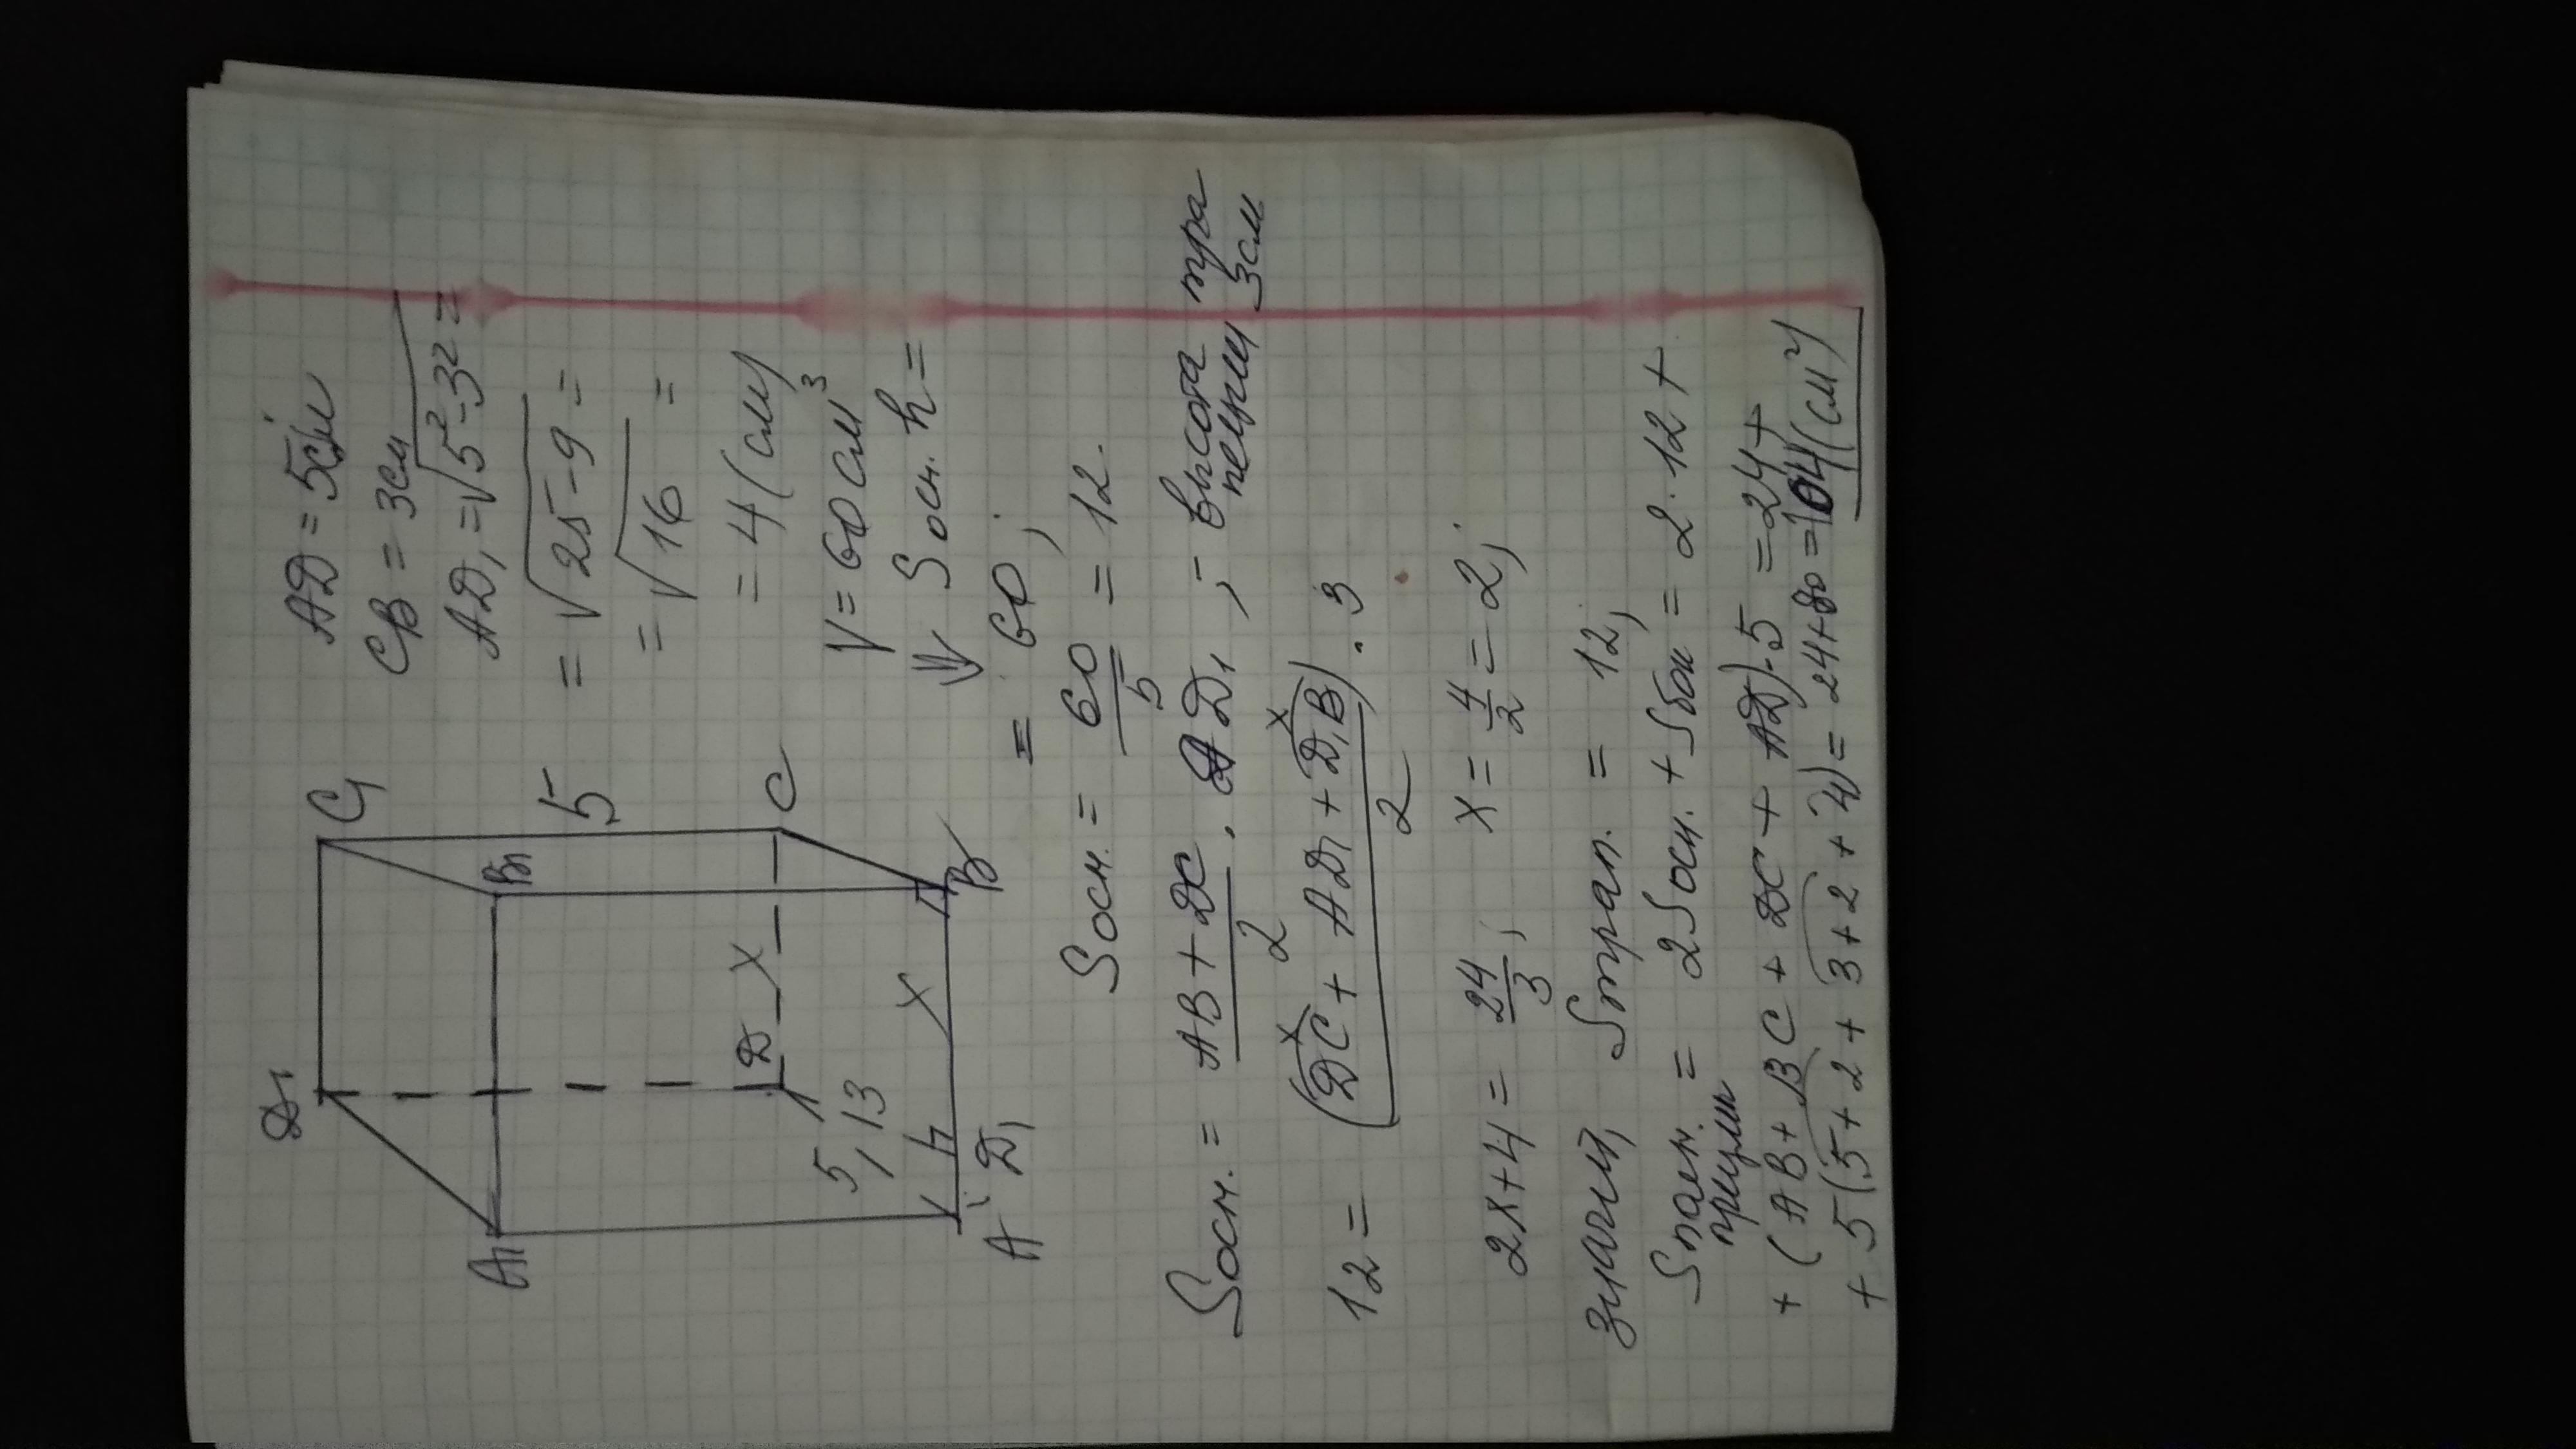 D₁ C₁
A₁ B₁
5
D X C
5, 13
X
A D₁ B
AD = 5см
CB = 3см
AD₁ = √5² - 3² =
= √25 - 9 =
= √16 =
= 4 (см)
V = 60 см³
⇓ Sосн. h =
= 60 ;
Sосн. = 60/5 = 12.
Sосн. = (AB + DC)/2 · AD₁ ; - высота трапеции 3см
12 = (DC + AD₁ + D₁B)/2 · 3
x x
2x + 4 = 24/3 ; x = 4/2 = 2 ;
значит, Sтрап. = 12,
Sполн. призмы = 2Sосн. + Sбок = 2 · 12 +
+ (AB + BC + DC + AD) · 5 = 24 +
+ 5 (5 + 2 + 3 + 2 + 4) = 24 + 80 = 104 (см²)